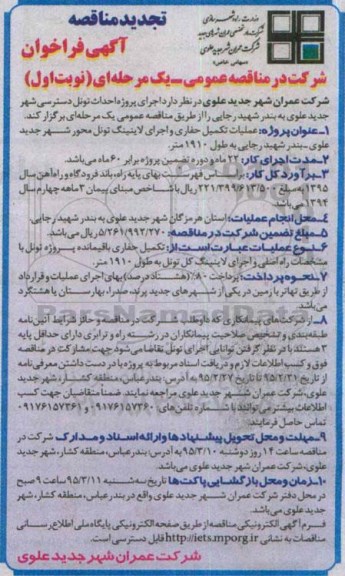 تجدید مناقصه
آگهی فراخوان
وزارت راه و شهرسازی
شرکت عمران شهر جدید علوی
(سهامی خاص)
شرکت در مناقصه عمومی - یک مرحله‌ای (نوبت اول)
شرکت عمران شهر جدید علوی در نظر دارد اجرای پروژه احداث تونل دسترسی شهر
جدید علوی به بندر شهید رجایی را از طریق مناقصه عمومی یک مرحله‌ای برگزار کند.
۱- عنوان پروژه: عملیات تکمیل حفاری و اجرای لاینینگ تونل محور شهر جدید
علوی - بندر شهید رجایی به طول ۱۹۱۰ متر.
۲- مدت اجرای کار: ۲۲ ماه و دوره تضمین پروژه برابر ۶۰ ماه می‌باشد.
۳- برآورد کل کار: براساس فهرست بهای پایه راه، باند فرودگاه و راه‌آهن سال
۱۳۹۵ به مبلغ ۲۲۱/۳۹۹/۶۱۳/۵۰۰ ریال با شاخص مبنای پیمان ۳ ماهه چهارم سال
۱۳۹۴ می‌باشد.
۴- محل انجام عملیات: استان هرمزگان شهر جدید علوی به بندر شهید رجایی.
۵- مبلغ تضمین شرکت در مناقصه: ۵/۲۶۱/۹۹۲/۲۷۰ ریال می‌باشد.
۶- نوع عملیات عبارت است از: تکمیل حفاری باقیمانده پروژه تونل با
مشخصات راه اصلی و اجرای لاینینگ کل تونل به طول ۱۹۱۰ متر.
۷- نحوه پرداخت: پرداخت ۸۰٪ (هشتاد درصد) بهای اجرای عملیات و قرارداد
از طریق تهاتر با زمین در یکی از شهرهای جدید پرند، صدرا، بهارستان یا هشتگرد
می‌باشد.
۸- از شرکت‌های پیمانکاری که داوطلب شرکت در مناقصه و حائز شرایط آئین‌نامه
طبقه‌بندی و تشخیص صلاحیت پیمانکاران در رشته راه و ترابری دارای حداقل پایه
۳ هستند با در نظر گرفتن توانایی اجرای تونل تقاضا می‌شود جهت مشارکت در مناقصه
فوق و کسب اطلاعات لازم و دریافت اسناد مربوط به پروژه با در دست داشتن معرفی‌نامه
از تاریخ ۹۵/۲/۲۱ تا تاریخ ۹۵/۲/۲۷ به آدرس: بندرعباس، منطقه کشار، شهر جدید
علوی، شرکت عمران شهر جدید علوی مراجعه نمایند. ضمنا متقاضیان جهت کسب
اطلاعات بیشتر می‌توانند با شماره تلفن‌های ۰۹۱۷۶۱۵۷۳۶۰ و ۰۹۱۷۶۱۵۷۳۶۱
تماس حاصل فرمایند.
۹- مهلت و محل تحویل پیشنهادها و ارائه اسناد و مدارک شرکت در
مناقصه ساعت ۱۴ روز دوشنبه ۹۵/۳/۱۰ به آدرس: بندرعباس، منطقه کشار، شهر جدید
علوی، شرکت عمران شهر جدید علوی می‌باشد.
۱۰- زمان و محل بازگشایی پاکت‌ها تاریخ سه‌شنبه ۹۵/۳/۱۱ ساعت ۹ صبح
در محل دفتر شرکت عمران شهر جدید علوی واقع در بندرعباس، منطقه کشار، شهر
جدید علوی می‌باشد.
فرم آگهی الکترونیکی مناقصه از طریق صفحه الکترونیکی پایگاه ملی اطلاع‌رسانی
مناقصات به نشانی http://iets.mporg.ir قابل دسترسی است.
شرکت عمران شهر جدید علوی